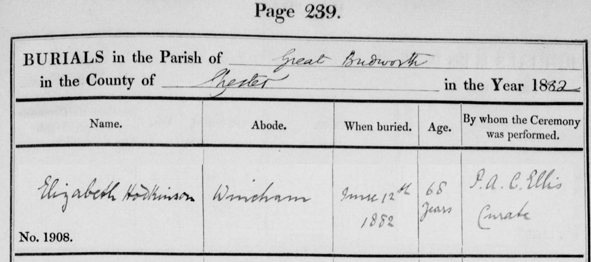 Page 239.
BURIALS in the Parish of Great Budworth
in the County of Chester in the Year 1882
Name. Abode. When buried. Age. By whom the Ceremony was performed.
Elizabeth Hodkinson Wincham June 12th 1882 68 Years P. A. C. Ellis Curate
No. 1908.